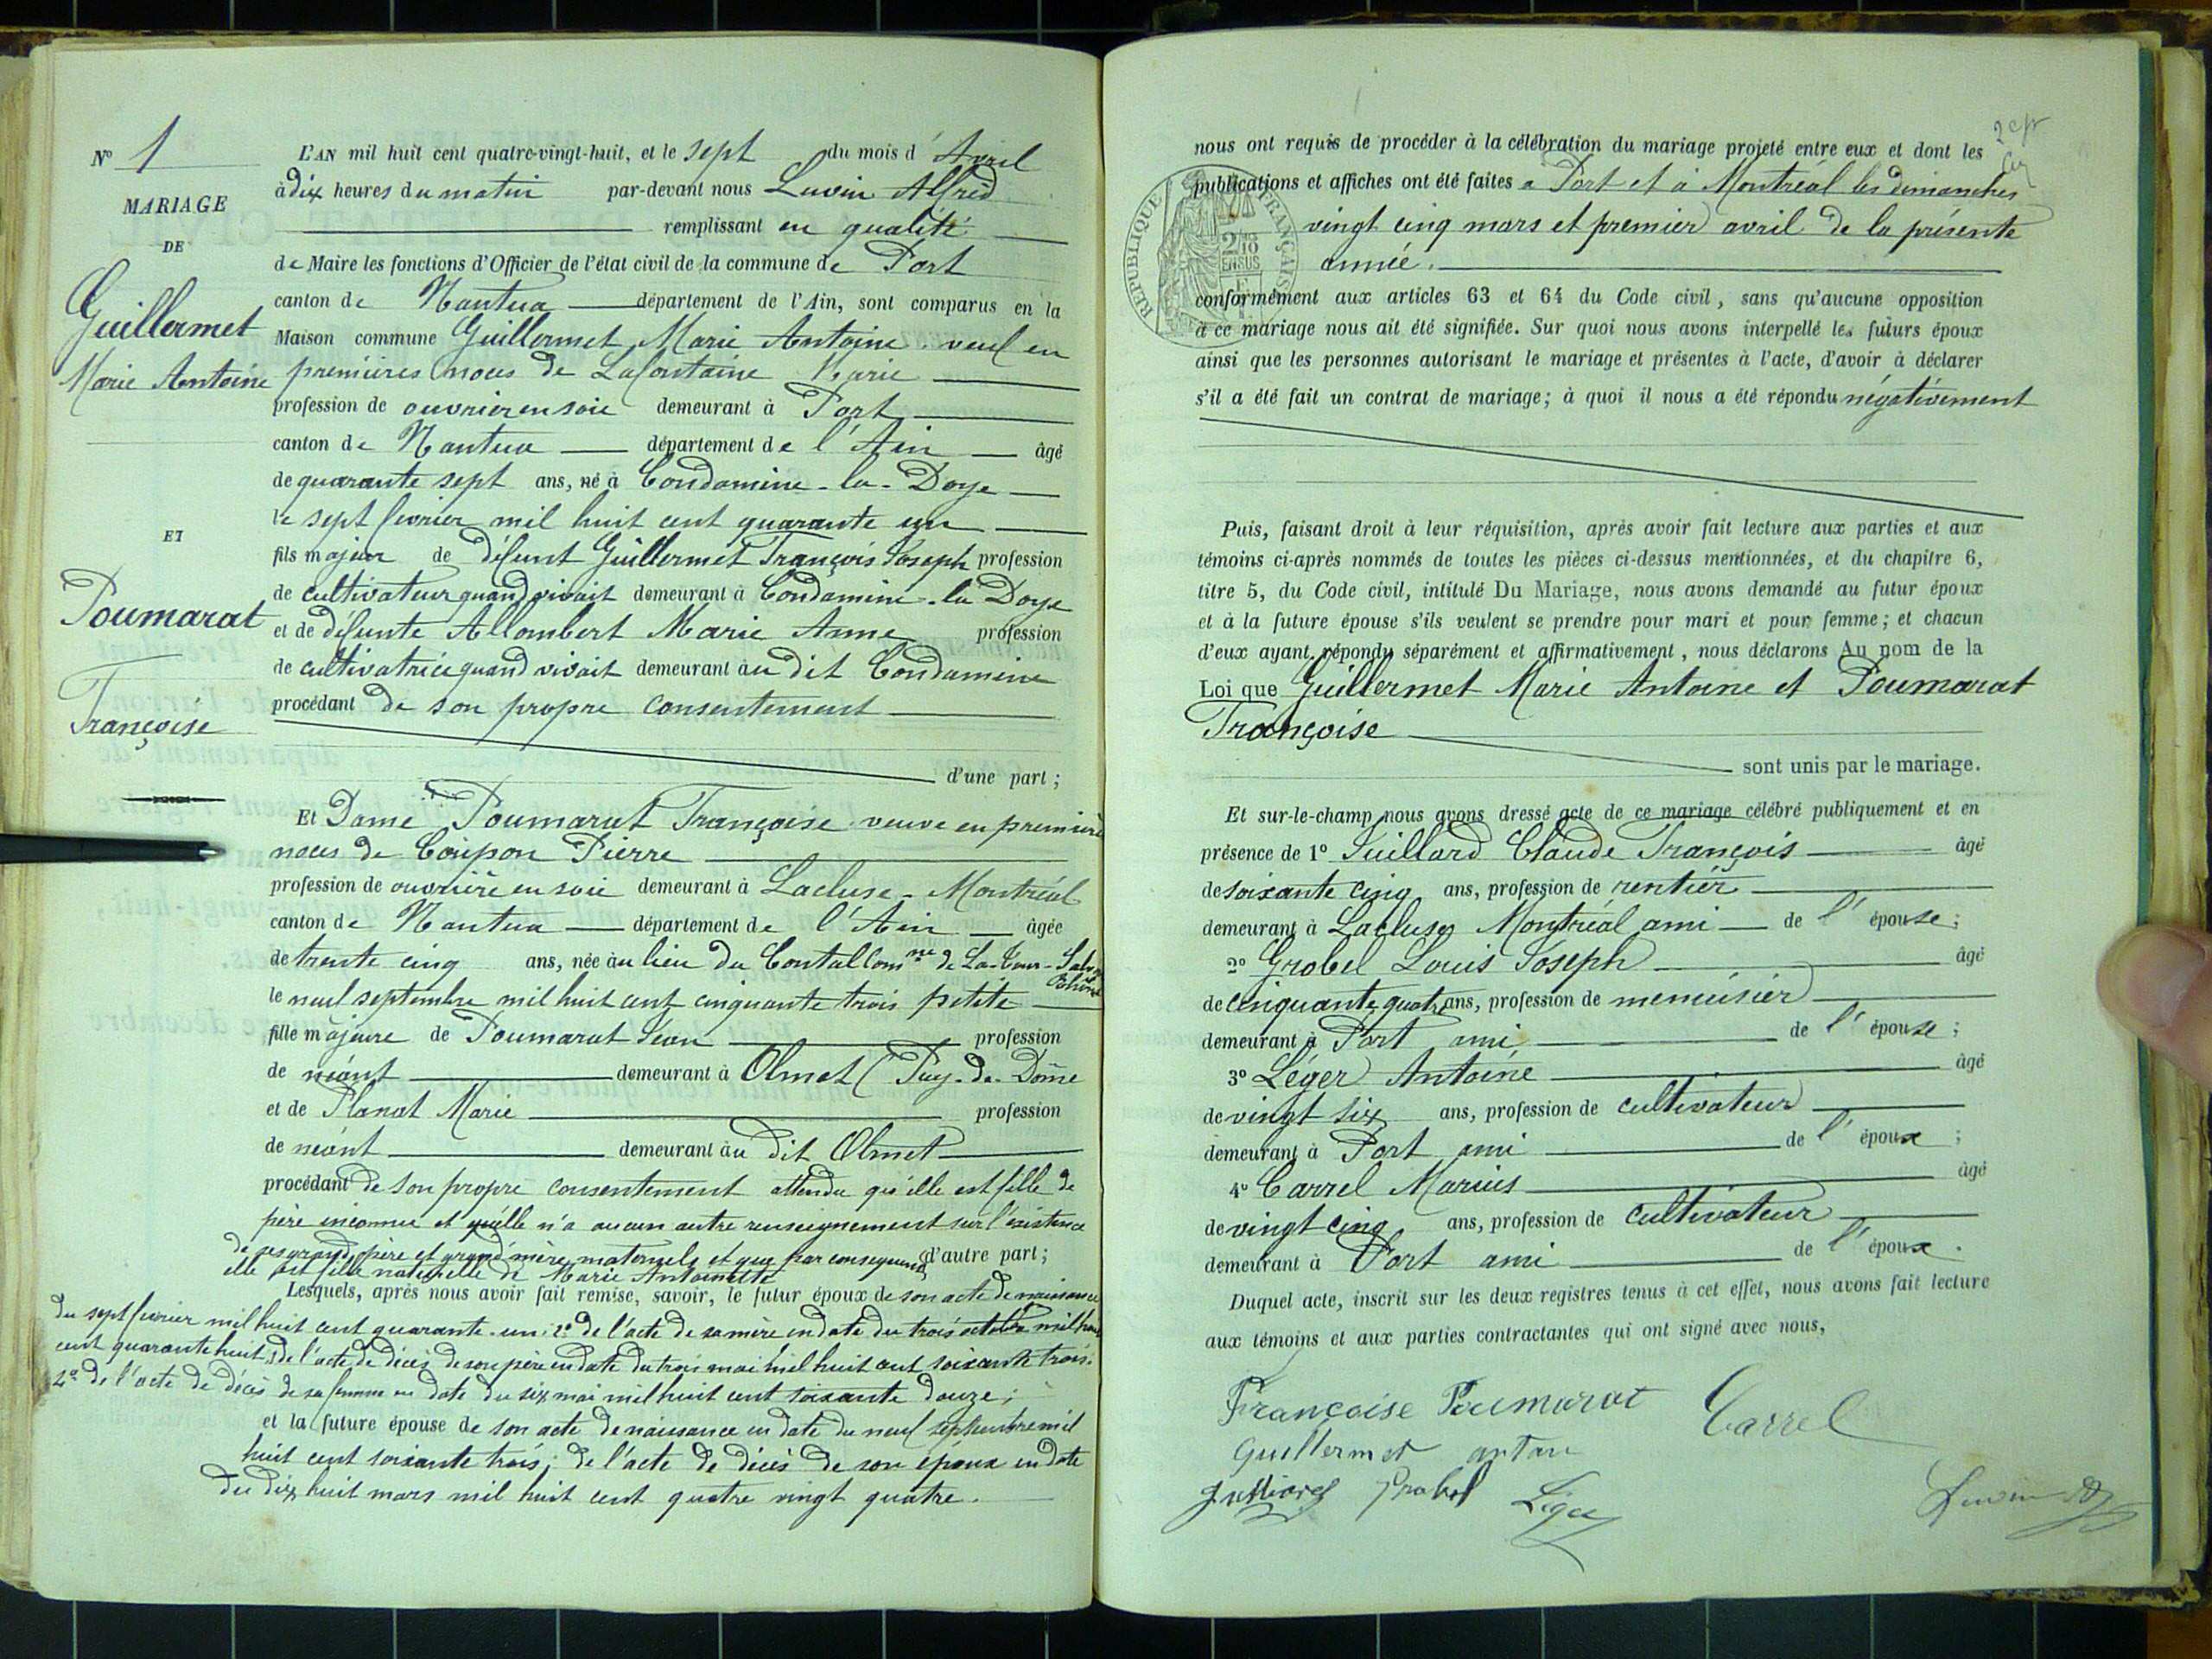 N° 1
MARIAGE
DE
Guillermet
Marie Antoine
ET
Poumarat
Françoise
L'AN mil huit cent quatre-vingt-huit, et le sept du mois d'Avril
à dix heures du matin par-devant nous Luvin Alfred
remplissant en qualité
de Maire les fonctions d'Officier de l'état civil de la commune de Port
canton de Nantua département de l'Ain, sont comparus en la
Maison commune Guillermet Marie Antoine veuf en
premières noces de Lafontaine Marie
profession de ouvrier en soie demeurant à Port
canton de Nantua département de l'Ain âgé
de quarante sept ans, né à Condamine-la-Doye
le sept février mil huit cent quarante un
fils majeur de défunt Guillermet François Joseph profession
de cultivateur quand vivait demeurant à Condamine-la Doye
et de défunte Allombert Marie Anne profession
de cultivatrice quand vivait demeurant au dit Condamine
procédant de son propre consentement
d'une part ;
Et Dame Poumarat Françoise veuve en première
noces de Coupon Pierre
profession de ouvrière en soie demeurant à Lacluse-Montréal
canton de Nantua département de l'Ain âgée
de trente cinq ans, née au lieu du Contal Comne de La-Tour-
le neuf septembre mil huit cent cinquante trois petite
fille majeure de Poumarat Jean profession
de néant demeurant à Olmet (Puy-de-Dôme
et de Planat Marie profession
de néant demeurant au dit Olmet
procédant de son propre consentement attendu qu'elle est fille de
père inconnu et qu'elle n'a aucun autre renseignement sur l'existence
de ses grand père et grand'mère maternels et que par conséquent d'autre part ;
elle est fille naturelle de Marie Antoinette
Lesquels, après nous avoir fait remise, savoir, le futur époux de son acte de naissance
du sept février mil huit cent quarante-un ; 2° de l'acte de sa mère en date du trois octobre mil huit
cent quarante huit, 3° de l'acte de décès de son père en date du trois mai mil huit cent soixante trois ;
4° de l'acte de décès de sa femme en date du six mai mil huit cent soixante douze ;
et la future épouse de son acte de naissance en date du neuf septembre mil
huit cent soixante trois ; de l'acte de décès de son époux en date
du dix huit mars mil huit cent quatre vingt quatre.
nous ont requis de procéder à la célébration du mariage projeté entre eux et dont les
publications et affiches ont été faites à Port et à Montréal les dimanches
vingt cinq mars et premier avril de la présente
année.
RÉPUBLIQUE FRANÇAISE
conformément aux articles 63 et 64 du Code civil, sans qu'aucune opposition
à ce mariage nous ait été signifiée. Sur quoi nous avons interpellé les futurs époux
ainsi que les personnes autorisant le mariage et présentes à l'acte, d'avoir à déclarer
s'il a été fait un contrat de mariage ; à quoi il nous a été répondu négativement
Puis, faisant droit à leur réquisition, après avoir fait lecture aux parties et aux
témoins ci-après nommés de toutes les pièces ci-dessus mentionnées, et du chapitre 6,
titre 5, du Code civil, intitulé Du Mariage, nous avons demandé au futur époux
et à la future épouse s'ils veulent se prendre pour mari et pour femme ; et chacun
d'eux ayant répondu séparément et affirmativement, nous déclarons Au nom de la
Loi que Guillermet Marie Antoine et Poumarat
Françoise
sont unis par le mariage.
Et sur-le-champ nous avons dressé acte de ce mariage célébré publiquement et en
présence de 1° Juillard Claude François âgé
de soixante cinq ans, profession de rentier
demeurant à Lacluse Montréal ami de l'épouse ;
2° Grobel Louis Joseph âgé
de cinquante quatre ans, profession de menuisier
demeurant à Port ami de l'épouse ;
3° Léger Antoine âgé
de vingt six ans, profession de cultivateur
demeurant à Port ami de l'époux ;
4° Carrel Marius âgé
de vingt cinq ans, profession de cultivateur
demeurant à Port ami de l'époux.
Duquel acte, inscrit sur les deux registres tenus à cet effet, nous avons fait lecture
aux témoins et aux parties contractantes qui ont signé avec nous,
Françoise Poumarat Carrel
Guillermet antoi
Juillard Grobel Léger